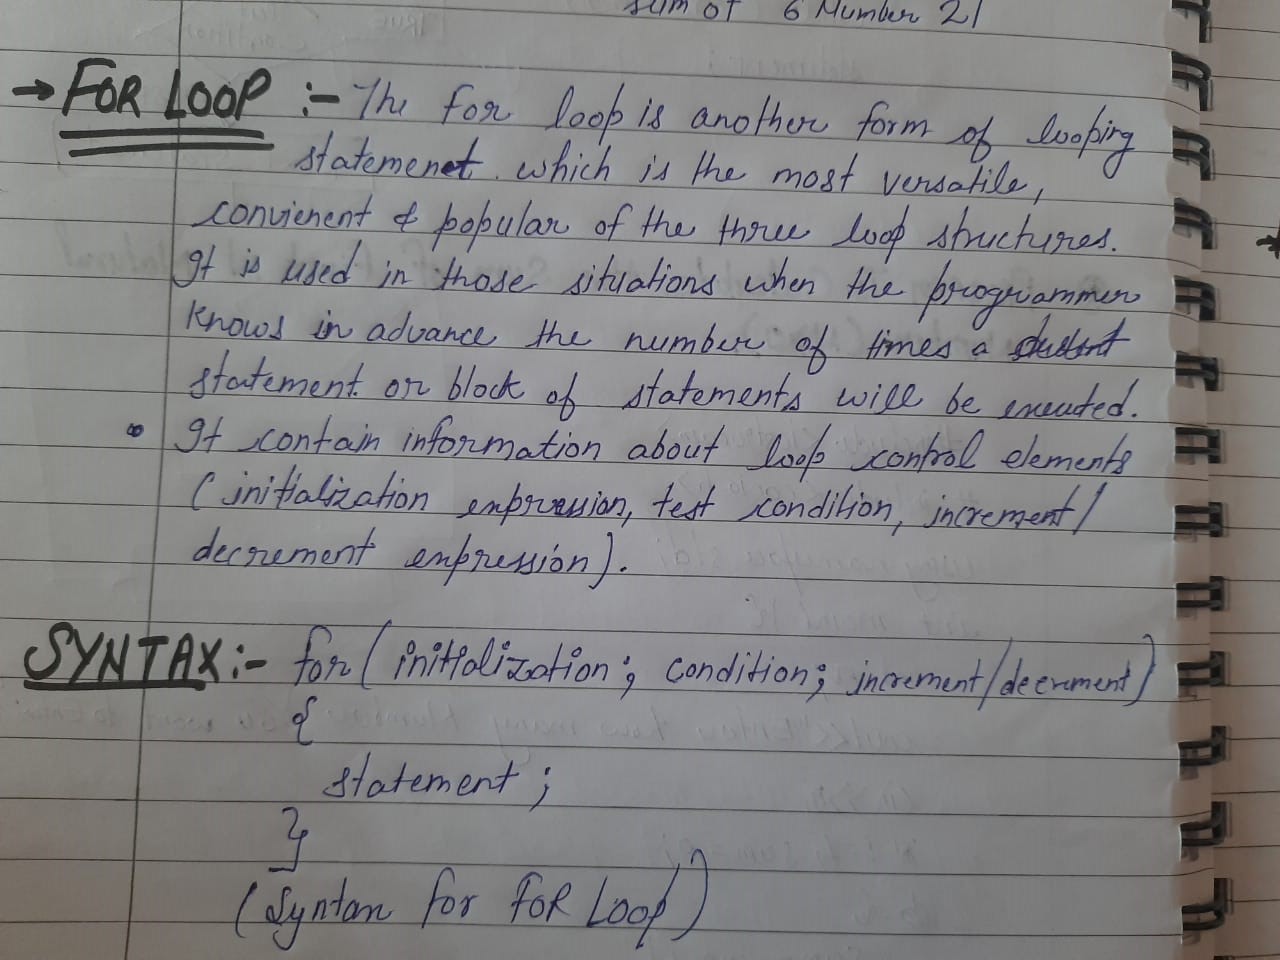 sum of 6 Number 21
→ FOR LOOP :- The for loop is another form of looping
statemenet which is the most versatile,
convienent & popular of the three loop structures.
It is used in those situations when the programmer
knows in advance the number of times a
statement or block of statements will be executed.
• It contain information about loop control elements
(initialization expression, test condition, increment/
decrement expression).
SYNTAX :- for (initialization; condition; increment/decrement)
{
statement ;
}
(Syntax for FOR LOOP)